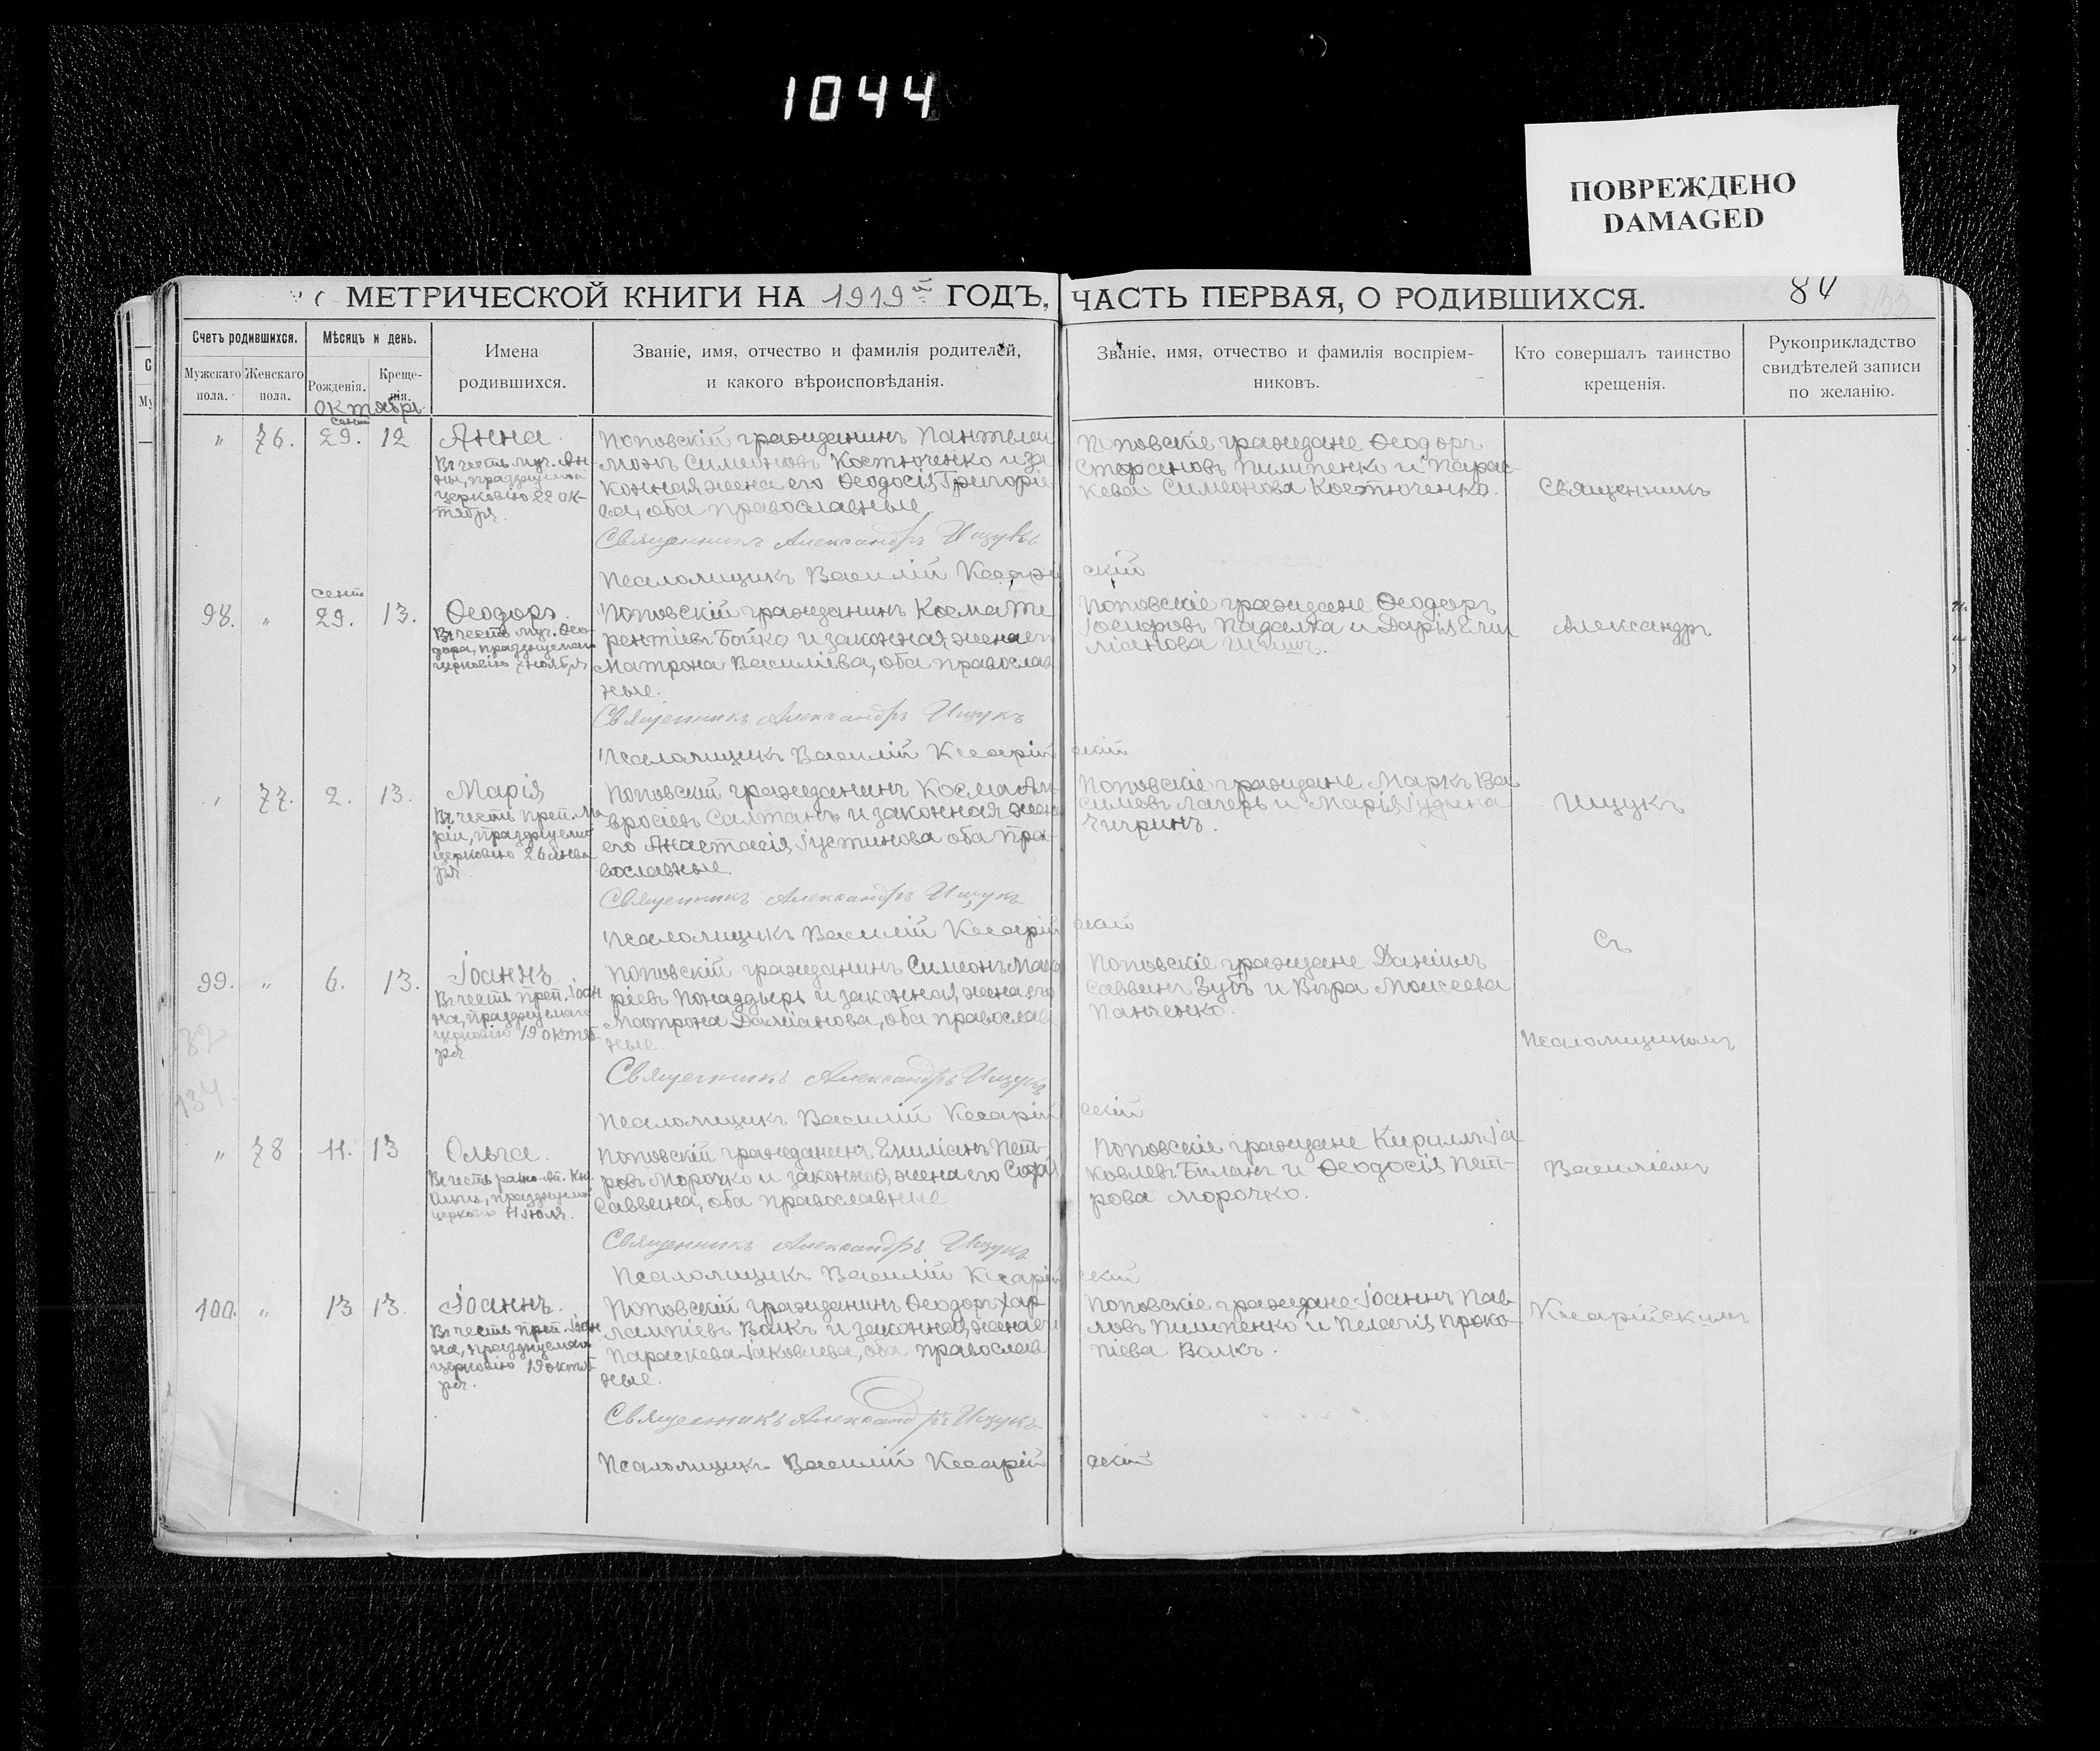 1044
ПОВРЕЖДЕНО
DAMAGED
МЕТРИЧЕСКОЙ КНИГИ НА 1919й ГОДЪ, ЧАСТЬ ПЕРВАЯ, О РОДИВШИХСЯ.
84
Счетъ родившихся.
Мужскаго пола.
Женскаго пола.
Мѣсяцъ и день.
Рожденія.
Креще-
нія.
Имена
родившихся.
Званіе, имя, отчество и фамилія родителей,
и какого вѣроисповѣданія.
Званіе, имя, отчество и фамилія воспріем-
никовъ.
Кто совершалъ таинство
крещенія.
Рукоприкладство
свидѣтелей записи
по желанію.
Октябрь
"
76.
сент
29.
12
Анна.
Въ честь муч. Ан-
ны, празднуемой
церковію 22 ок-
тября.
Поповскій гражданинъ Пантелеи
монъ Симеоновъ Костюченко и за
конная жена его Ѳеодосія Григорiе
ва, оба православные.
Священникъ Александръ Ищукъ
Псаломщикъ Василій Кесарій скій
Поповскіе граждане Ѳеодоръ
Стефановъ Пилипенко и Парас-
кева Симеонова Костюченко.
98.
"
сент
29.
13.
Ѳеодоръ.
Въ честь муч. Ѳео-
дора, празднуемаго
церковію ноября
Поповскій гражданинъ Косма Те
рентіевъ Бойко и законная жена его
Матрона Василіева, оба православ
ные.
Священникъ Александръ Ищукъ
Псаломщикъ Василій Кесарій скій
Поповскіе граждане Ѳеодоръ
Іосифовъ Падалка и Дарія Еми
ліанова
"
77.
2.
13.
Марія
Въ честь преп. Ма
ріи, празднуемой
церковію 26 янва
ря
Поповскій гражданинъ Косма Ам
вросіевъ Салтанъ и законная жена
его Анастасія Іустинова оба пра-
вославные.
Священникъ Александръ Ищукъ
Псаломщикъ Василій Кесарій скій
Поповскіе граждане Маркъ Ва
силіевъ и Марія Іудина
Чигринъ.
99.
"
6.
13.
Іоаннъ
Въ честь преп. Іоан
на, празднуемаго
церковію 19 октяб-
ря
Поповскій гражданинъ Симеонъ Мака
ріевъ и законная жена его
Матрона Даміанова, оба православ
ные.
Священникъ Александръ Ищукъ
Псаломщикъ Василій Кесарій скій
Поповскіе граждане Даніилъ
Саввинъ Зубъ и Вѣра Моисеева
Панченко.
134
"
78
11.
13
Ольга.
Въ честь равно-ап. Кн.
Ольги, празднуемой
церковію 11 іюля.
Поповскій гражданинъ Емиліанъ Пет-
ровъ Морочко и законная жена его Софія
Саввина, оба православные
Священникъ Александръ Ищукъ
Псаломщикъ Василій Кесарій скій
Поповскіе граждане Кириллъ Іа
ковлевъ Биланъ и Ѳеодосія Пет-
рова Морочко.
100.
"
13
13.
Іоаннъ.
Въ честь преп. Іоан
на, празднуемаго
церковію 19 октяб-
ря.
Поповскій гражданинъ Ѳеодоръ Хар-
лампіевъ Волкъ и законная жена его
Параскева Іаковлева, оба православ
ные.
Священникъ Александръ Ищукъ
Псаломщикъ Василій Кесарій скій
Поповскіе граждане Іоаннъ Пав-
ловъ Пилипенко и Пелагія Проко-
піева Волкъ.
Священникъ
Александръ
Ищукъ
Съ
Псаломщикомъ
Василіемъ
Кесарійскимъ